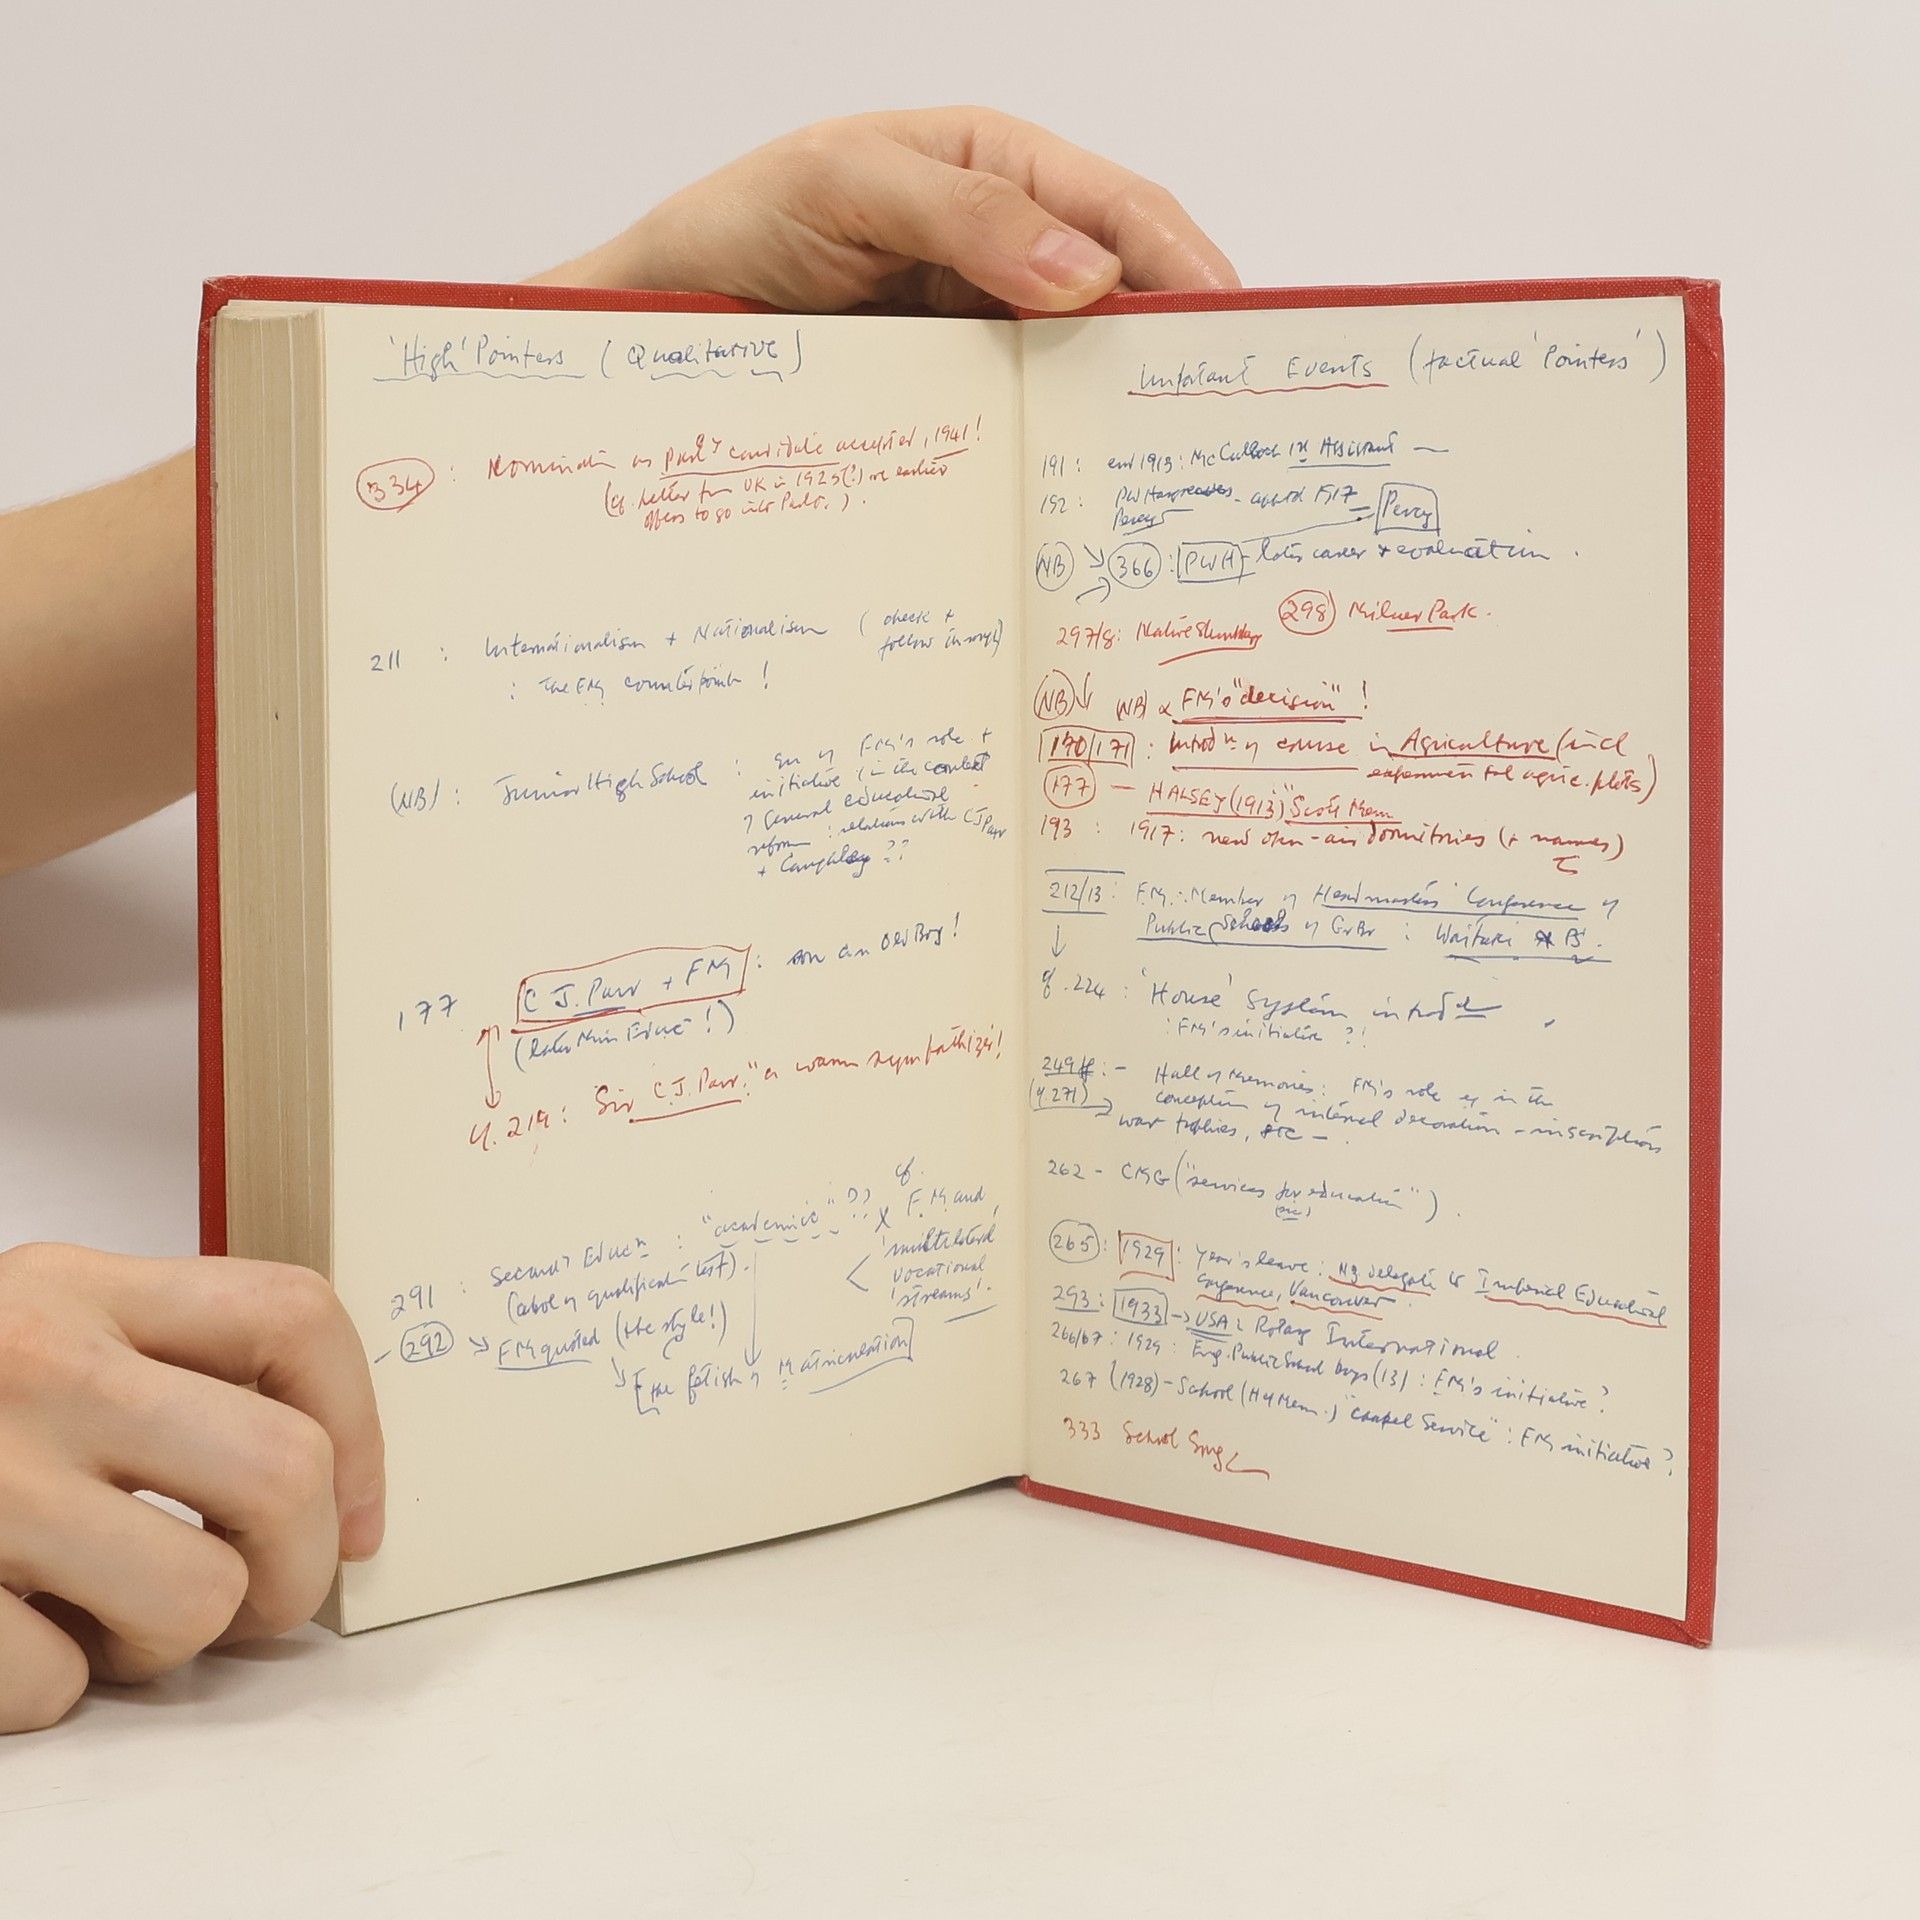 'High' Pointers (Qualitative)
334 : Nomination as Parl'y candidate accepted, 1941!
(cf. letter from UK in 1925(?) re earlier
offers to go into Parlt.).
211 : Internationalism + Nationalism (check +
follow through)
: The FM counterpoint!
(NB) : Junior High School : qu of FM's role +
initiative (in the context
of General educational
reform : relations with CJ Parr
+ Caughley ??
177 C J. Parr + FM : son an Old Boy!
(later Min Educ!)
cf. 219 : Sir C.J. Parr: "a warm sympathizer!
291 : Second'y Educn : "academic" ?? cf.
FM and
'multilateral
vocational
streams'.
(abol of qualificatn test).
292 FM quoted (the style!)
[the fetish of Matriculation]
Important Events (factual 'Pointers')
191 : end 1913 : McCulloch 1st Assistant —
192 : PW Hargreaves - appted 1917 Percy
Percy
NB 366 : PWH - later career & evaluation.
297/8: Native 298 Milner Park.
NB (NB) FM's "decision"!
170/171 : Introdn of course in Agriculture (incl
experimental agric. plots)
177 — HALSEY (1913) "Scott Mem
193 : 1917: new open-air dormitories (+ names)
212/13 : FM : Member of Headmasters' Conference of
Public Schools of Gr Br : Waitaki PS.
cf. 224 : 'House' System introd
: FM's initiative ?!
249ff : - Hall of Memories : FM's role in the
(cf. 271) conception of internal decoration - inscriptions
war trophies, etc - .
262 - CMG ("services for education").
(sic)
265 : 1929 : Year's leave : NZ delegate to Imperial Educational
Conference, Vancouver.
293 : 1933 → USA : Rotary International
266/67 : 1929 : Eng. Public School boys (13) : FM's initiative?
267 (1928) - School (H of Mem.) "Chapel Service" : FM initiative?
333 School Song